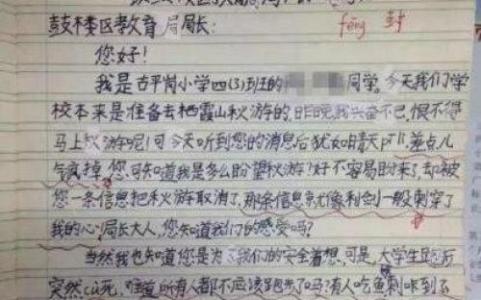 鼓楼区教育局局长：
fēng 封
您好！
我是古平岗小学四(3)班的 同学，今天我们学
校本来是准备去栖霞山秋游的，昨晚我兴奋不已，恨不得
马上秋游呢！可今天听到您的消息后犹如晴天pī lì，差点儿
气疯掉，您可知道我是多么盼望秋游？好不容易盼来了，却被
您一条信息把秋游取消了，那条信息就像利剑一般刺穿了
我的心！局长大人，您知道我们的感受吗？
当然我也知道您是为了我们的安全着想，可是，大学生跑后
突然cù死，难道所有人都不应该跑步了吗？有人吃鱼刺卡到了